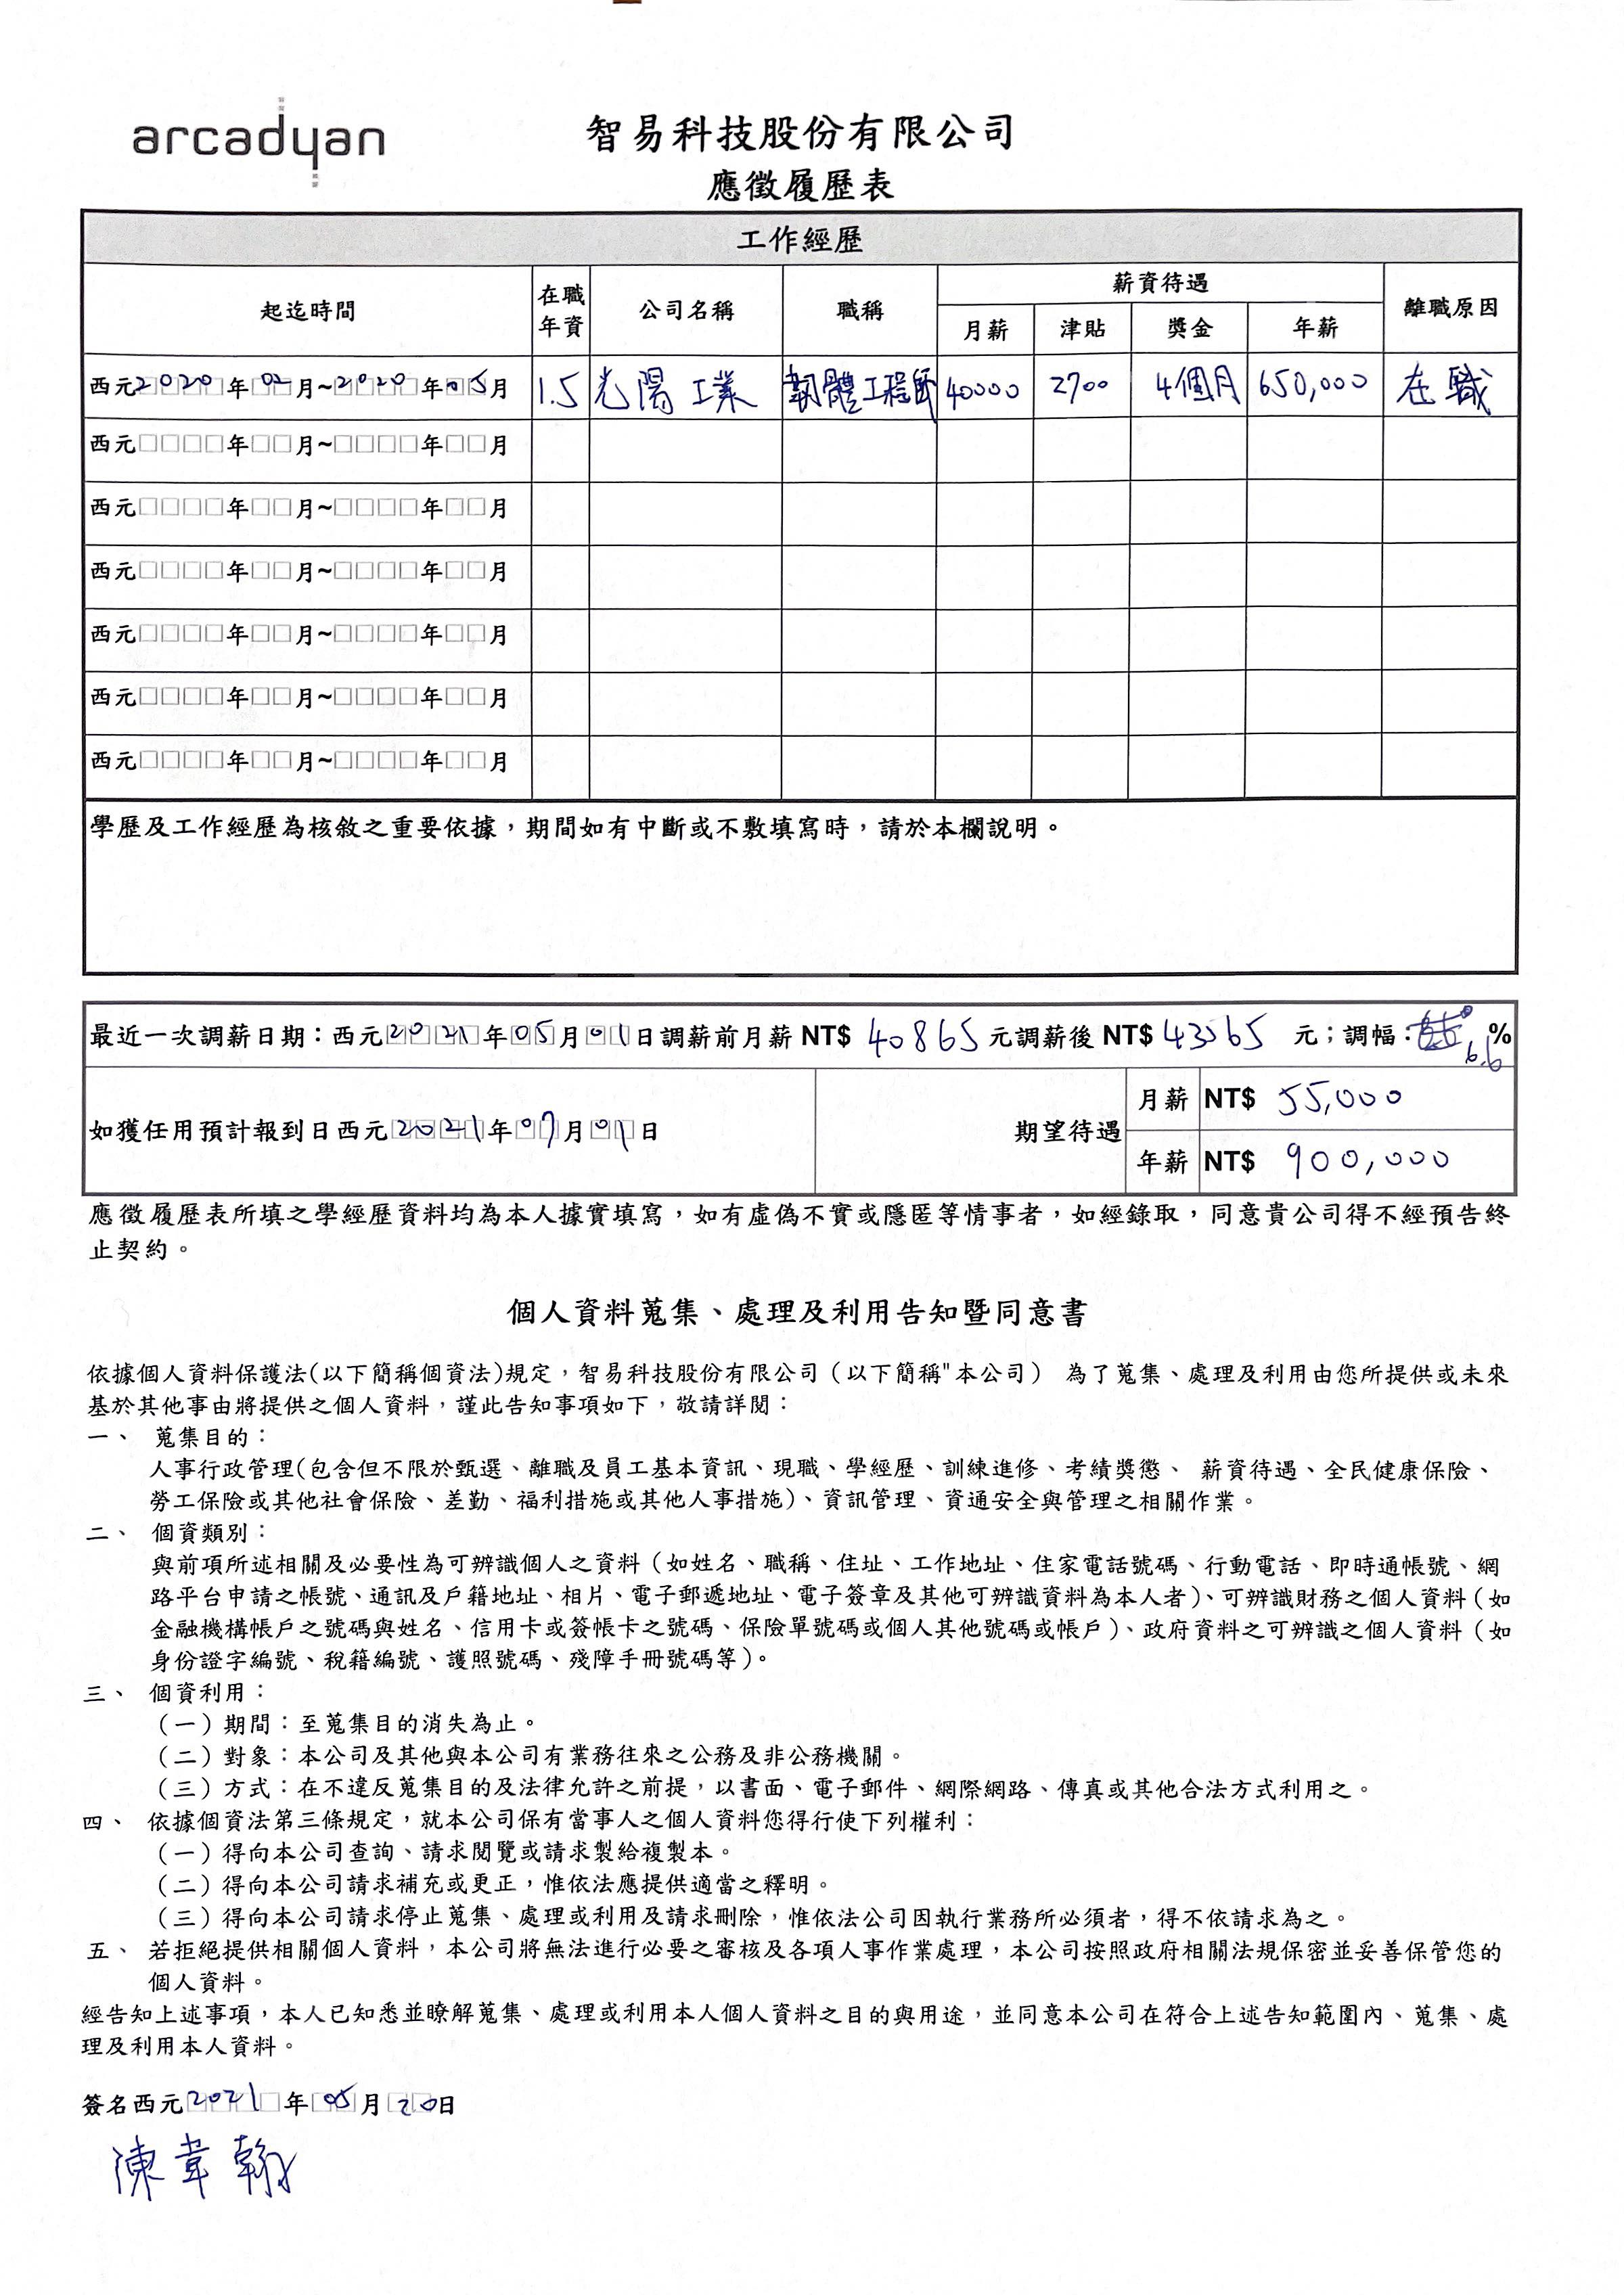 arcadyan
智易科技股份有限公司
應徵履歷表
工作經歷
起迄時間 在職年資 公司名稱 職稱 薪資待遇 離職原因
月薪 津貼 獎金 年薪
西元2020年02月~2020年05月 1.5 光陽工業 韌體工程師 40000 2700 4個月 650,000 在職
西元□□□□年□□月~□□□□年□□月
西元□□□□年□□月~□□□□年□□月
西元□□□□年□□月~□□□□年□□月
西元□□□□年□□月~□□□□年□□月
西元□□□□年□□月~□□□□年□□月
西元□□□□年□□月~□□□□年□□月
學歷及工作經歷為核敘之重要依據，期間如有中斷或不敷填寫時，請於本欄說明。
最近一次調薪日期：西元2021年05月01日調薪前月薪 NT$ 40865 元調薪後 NT$ 43565 元；調幅： 6.6 %
如獲任用預計報到日西元2021年07月01日 期望待遇 月薪 NT$ 55,000
年薪 NT$ 900,000
應徵履歷表所填之學經歷資料均為本人據實填寫，如有虛偽不實或隱匿等情事者，如經錄取，同意貴公司得不經預告終
止契約。
個人資料蒐集、處理及利用告知暨同意書
依據個人資料保護法(以下簡稱個資法)規定，智易科技股份有限公司（以下簡稱"本公司） 為了蒐集、處理及利用由您所提供或未來
基於其他事由將提供之個人資料，謹此告知事項如下，敬請詳閱：
一、 蒐集目的：
人事行政管理(包含但不限於甄選、離職及員工基本資訊、現職、學經歷、訓練進修、考績獎懲、 薪資待遇、全民健康保險、
勞工保險或其他社會保險、差勤、福利措施或其他人事措施)、資訊管理、資通安全與管理之相關作業。
二、 個資類別：
與前項所述相關及必要性為可辨識個人之資料（如姓名、職稱、住址、工作地址、住家電話號碼、行動電話、即時通帳號、網
路平台申請之帳號、通訊及戶籍地址、相片、電子郵遞地址、電子簽章及其他可辨識資料為本人者)、可辨識財務之個人資料（如
金融機構帳戶之號碼與姓名、信用卡或簽帳卡之號碼、保險單號碼或個人其他號碼或帳戶)、政府資料之可辨識之個人資料（如
身份證字編號、稅籍編號、護照號碼、殘障手冊號碼等)。
三、 個資利用：
（一）期間：至蒐集目的消失為止。
（二）對象：本公司及其他與本公司有業務往來之公務及非公務機關。
（三）方式：在不違反蒐集目的及法律允許之前提，以書面、電子郵件、網際網路、傳真或其他合法方式利用之。
四、 依據個資法第三條規定，就本公司保有當事人之個人資料您得行使下列權利：
（一）得向本公司查詢、請求閱覽或請求製給複製本。
（二）得向本公司請求補充或更正，惟依法應提供適當之釋明。
（三）得向本公司請求停止蒐集、處理或利用及請求刪除，惟依法公司因執行業務所必須者，得不依請求為之。
五、 若拒絕提供相關個人資料，本公司將無法進行必要之審核及各項人事作業處理，本公司按照政府相關法規保密並妥善保管您的
個人資料。
經告知上述事項，本人已知悉並瞭解蒐集、處理或利用本人個人資料之目的與用途，並同意本公司在符合上述告知範圍內、蒐集、處
理及利用本人資料。
簽名西元2021年05月20日
陳韋翰